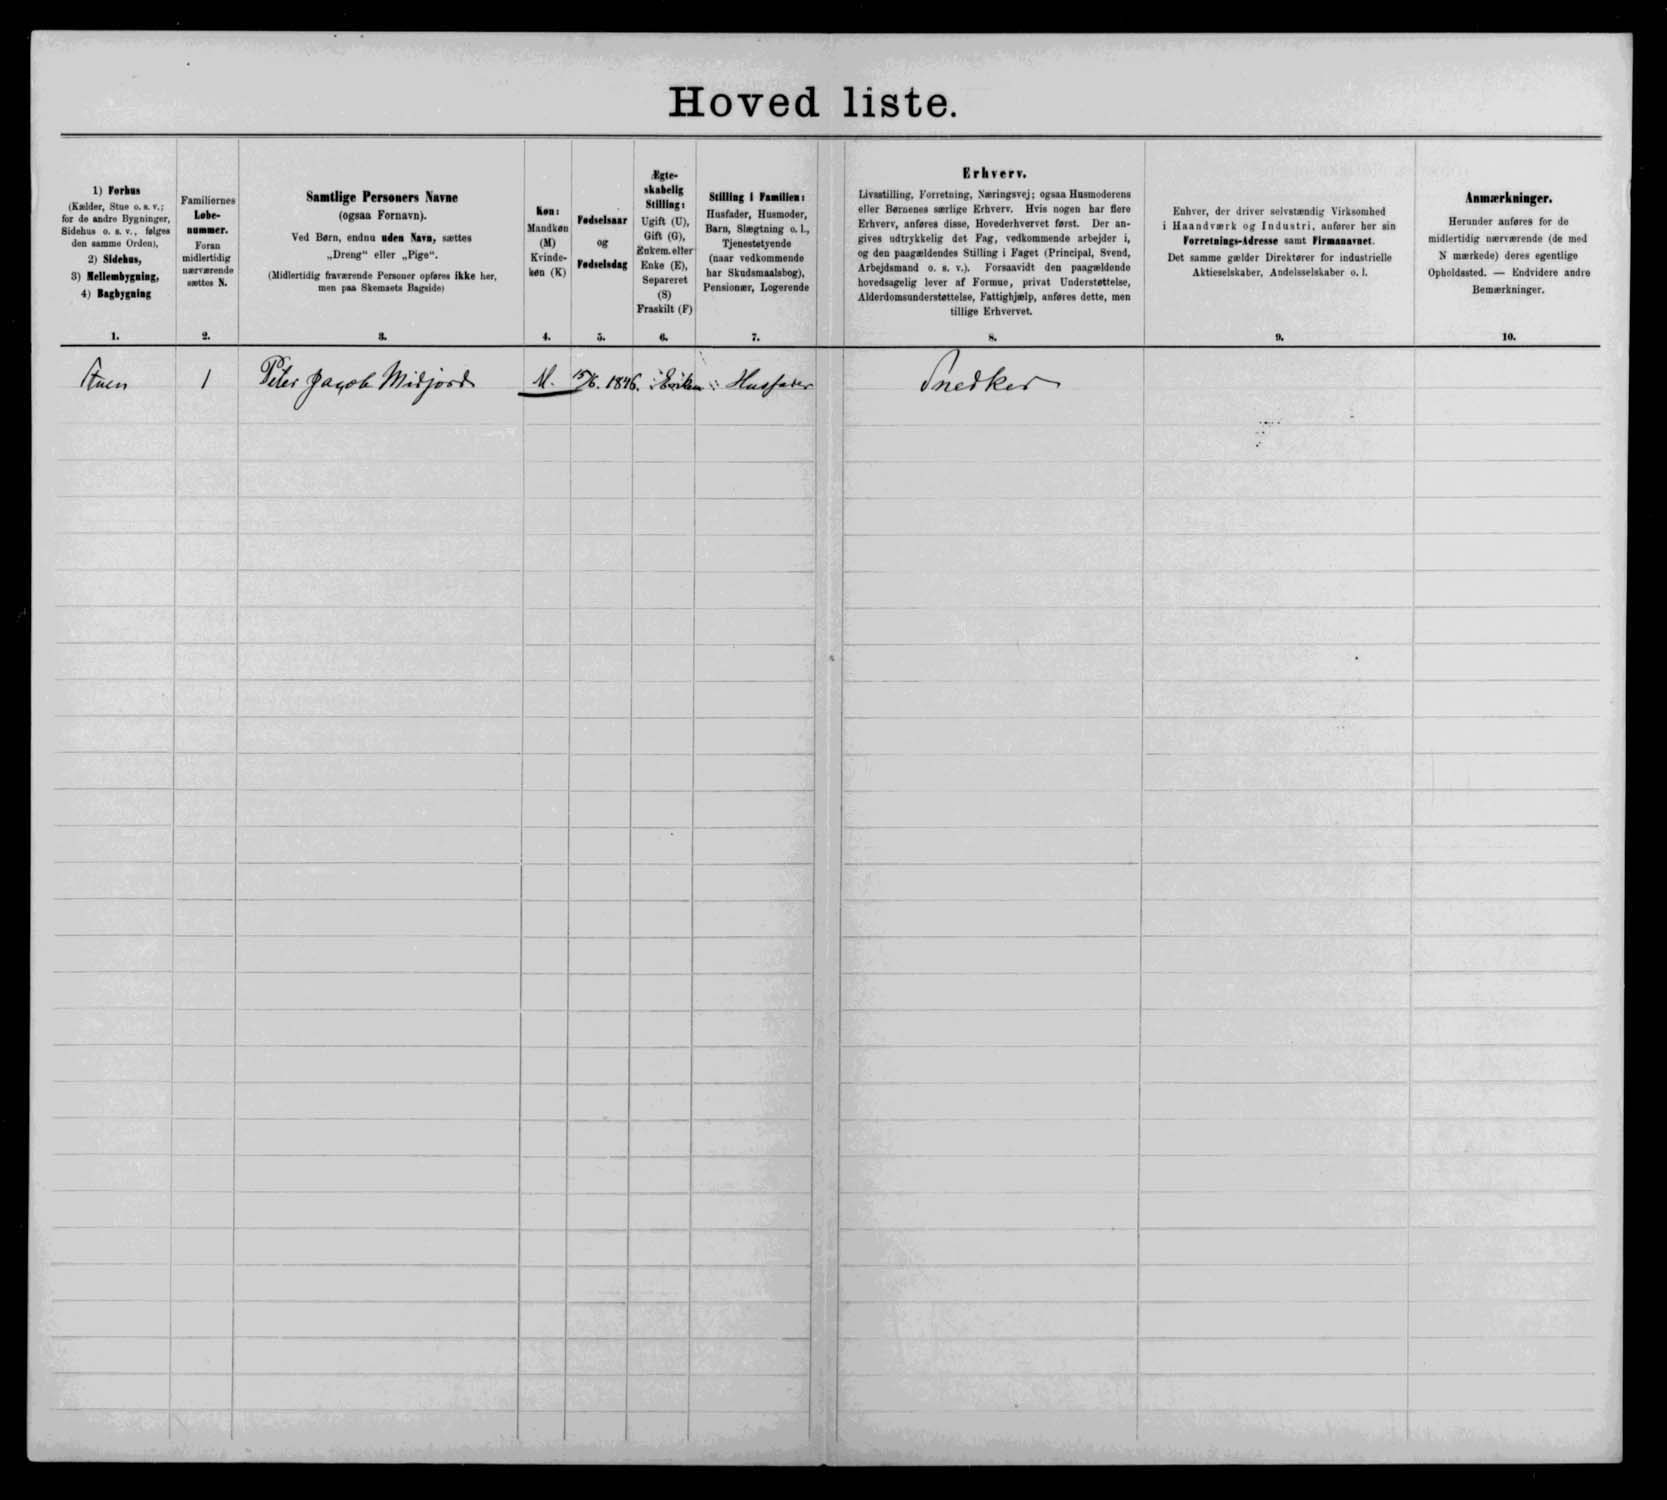 Hoved liste.
1) Forhus
(Kælder, Stue o. s. v.;
for de andre Bygninger,
Sidehus o. s. v., følges
den samme Orden),
2) Sidehus,
3) Mellembygning,
4) Bagbygning
1.
Familiernes
Løbe-
nummer.
Foran
midlertidig
nærværende
sættes N.
2.
Samtlige Personers Navne
(ogsaa Fornavn).
Ved Børn, endnu uden Navn, sættes
„Dreng“ eller „Pige“.
(Midlertidig fraværende Personer opføres ikke her,
men paa Skemaets Bagside)
3.
Køn:
Mandkøn
(M)
Kvinde-
køn (K)
4.
Fødselsaar
og
Fødselsdag
5.
Ægte-
skabelig
Stilling:
Ugift (U),
Gift (G),
Enkem. eller
Enke (E),
Separeret
(S)
Fraskilt (F)
6.
Stilling i Familien:
Husfader, Husmoder,
Barn, Slægtning o. l.,
Tjenestetyende
(naar vedkommende
har Skudsmaalsbog),
Pensionær, Logerende
7.
Erhverv.
Livsstilling, Forretning, Næringsvej; ogsaa Husmoderens
eller Børnenes særlige Erhverv. Hvis nogen har flere
Erhverv, anføres disse, Hovederhvervet først. Der an-
gives udtrykkelig det Fag, vedkommende arbejder i,
og den paagældendes Stilling i Faget (Principal, Svend,
Arbejdsmand o. s. v.). Forsaavidt den paagældende
hovedsagelig lever af Formue, privat Understøttelse,
Alderdomsunderstøttelse, Fattighjælp, anføres dette, men
tillige Erhvervet.
8.
Enhver, der driver selvstændig Virksomhed
i Haandværk og Industri, anfører her sin
Forretnings-Adresse samt Firmanavnet.
Det samme gælder Direktører for industrielle
Aktieselskaber, Andelsselskaber o. l.
9.
Anmærkninger.
Herunder anføres for de
midlertidig nærværende (de med
N mærkede) deres egentlige
Opholdssted. — Endvidere andre
Bemærkninger.
10.
Stuen 1 Peter Jacob Midjord M. 1846. Husfader Snedker